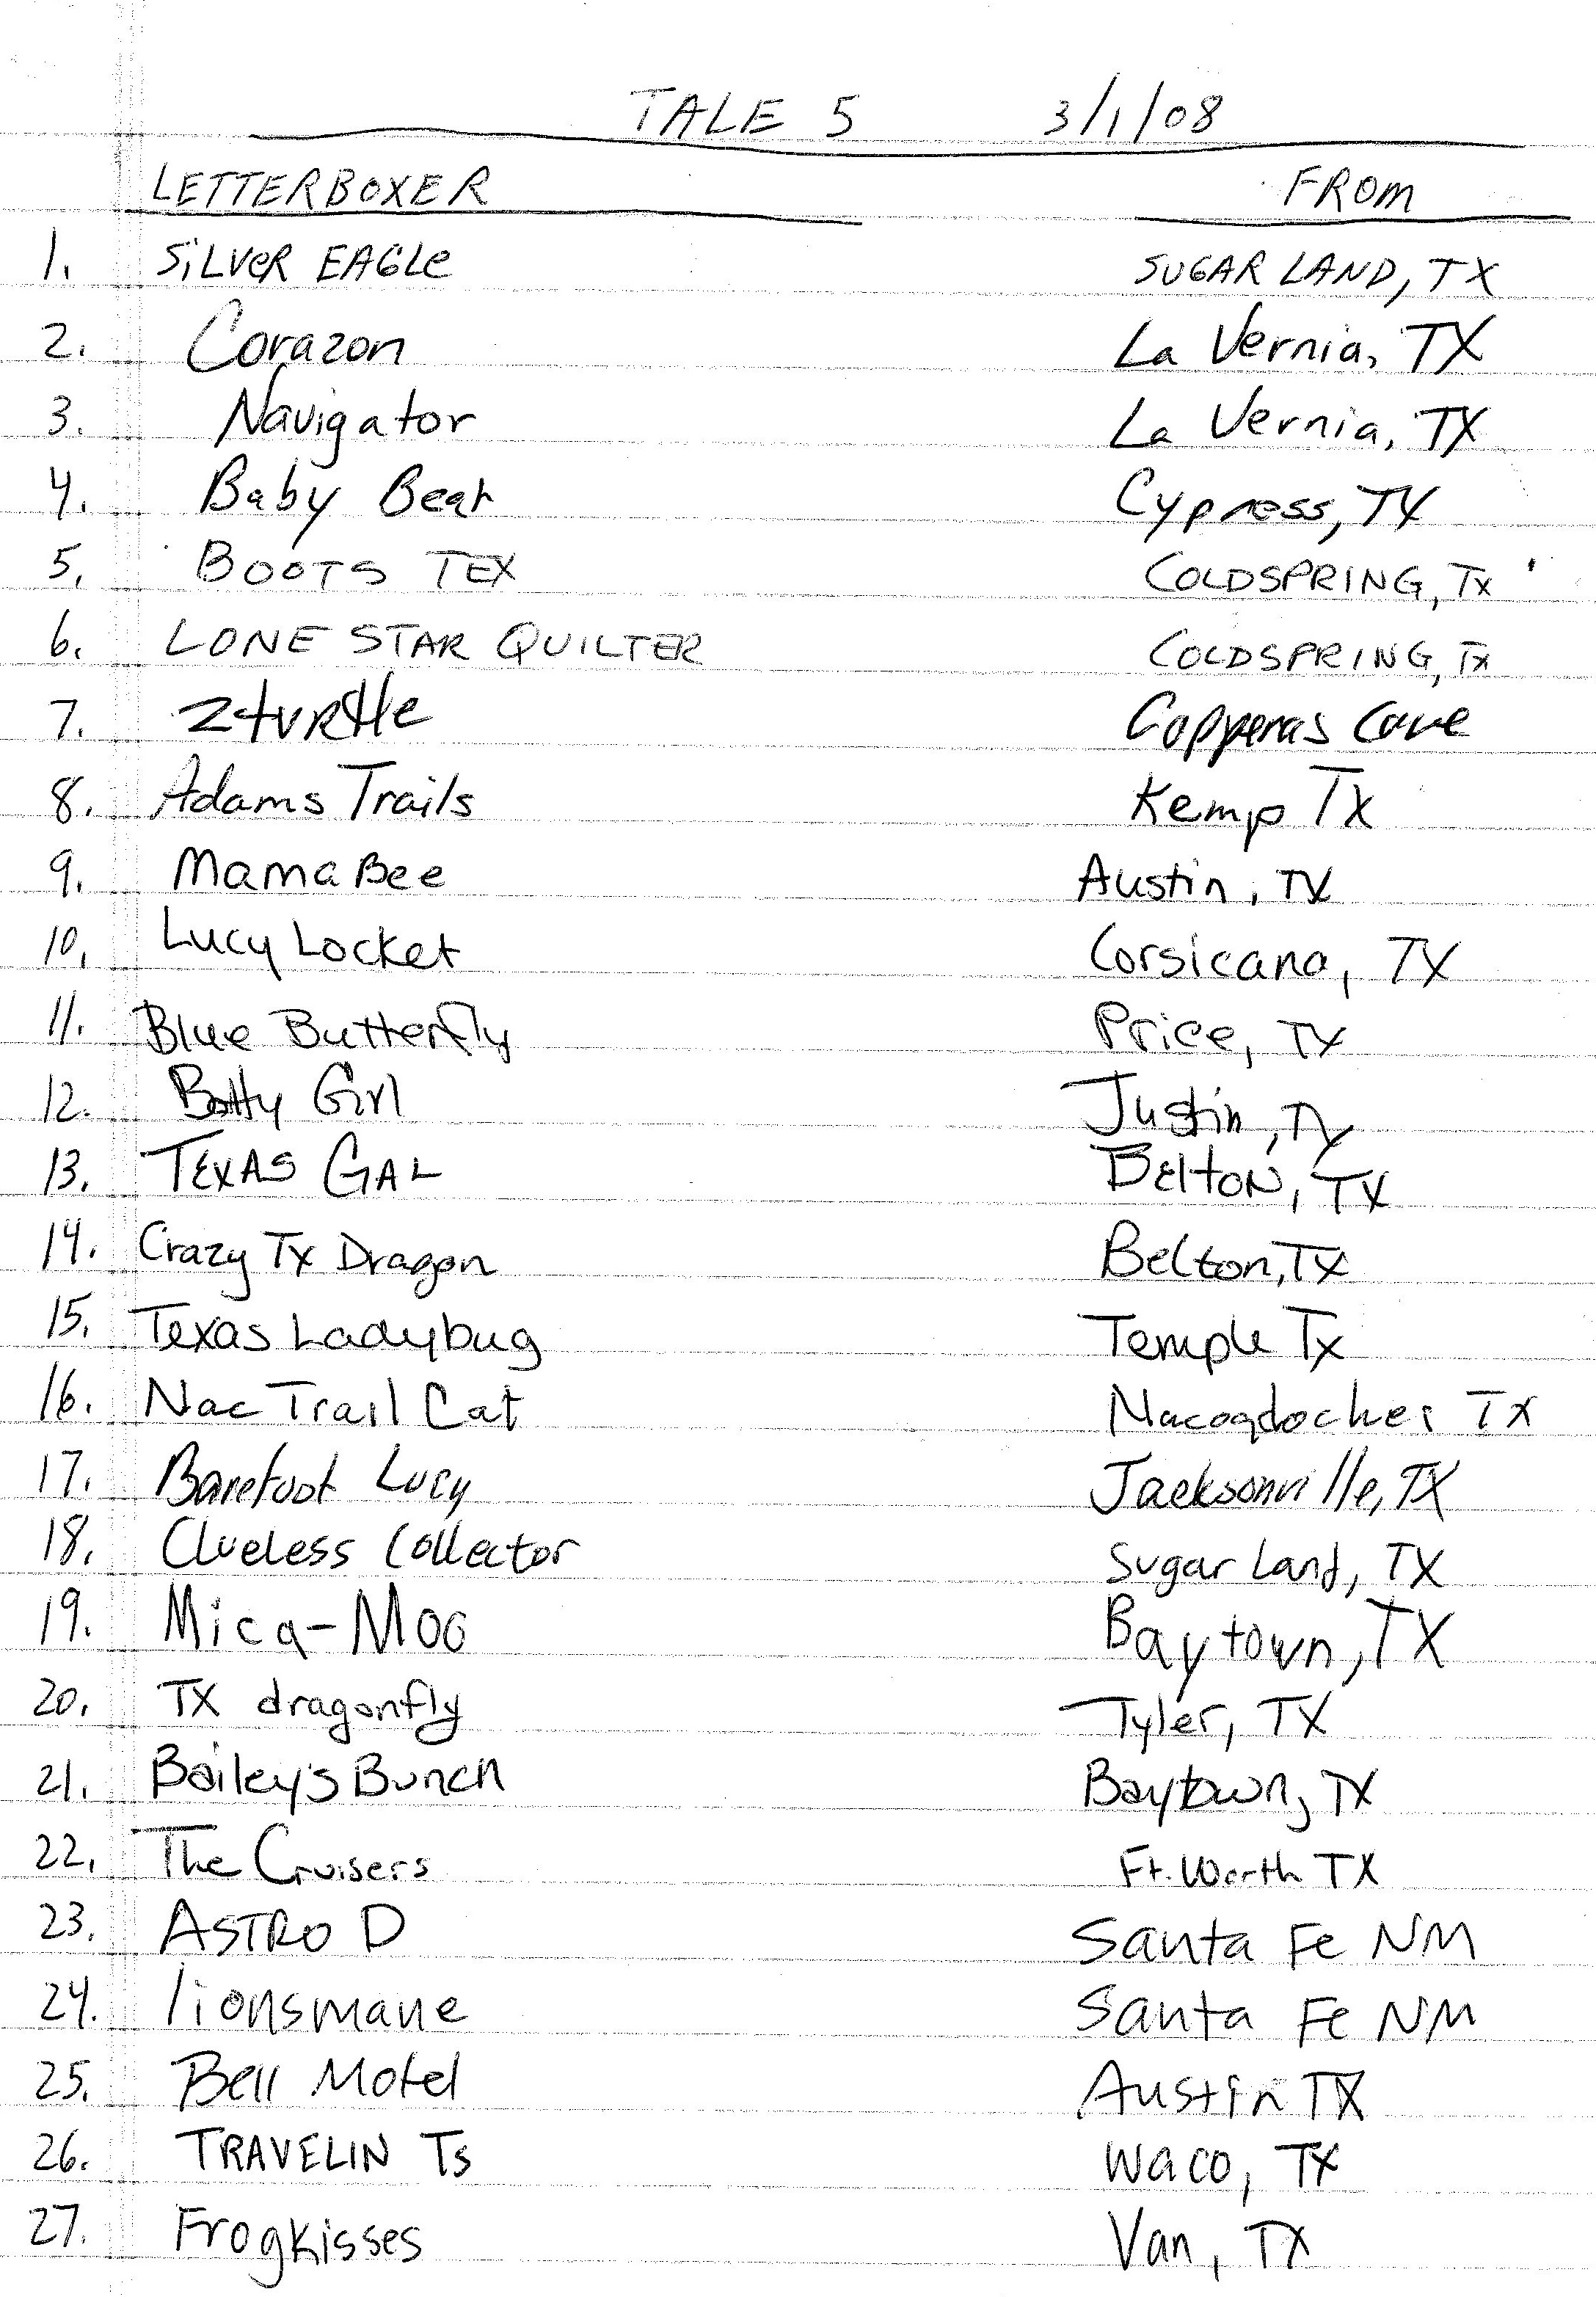 TALE 5 3/1/08
LETTERBOXER FROM
1. SiLVeR EAGLe SUGAR LAND, TX
2. Corazon La Vernia, TX
3. Navigator La Vernia, TX
4. Baby Bear Cypress, TX
5. BOOTS TEX COLDSPRING, Tx
6. LONE STAR QUILTER COLDSPRING, Tx
7. 2tuRtle Copperas Cove
8. Adams Trails Kemp Tx
9. Mama Bee Austin, TX
10. Lucy Locket Corsicana, TX
11. Blue Butterfly Price, TX
12. Girl Justin, TX
13. TEXAS GAL BEltoN, TX
14. Crazy Tx Dragon Belton, TX
15. Texas Ladybug Temple Tx
16. Nac Trail Cat Nacogdoches Tx
17. Barefoot Lucy Jacksonville, TX
18. Clueless Collector Sugar Land, TX
19. Mica-Moo Baytown, TX
20. TX dragonfly Tyler, TX
21. Bailey's Bunch Baytown, TX
22. The Cruisers Ft. Worth TX
23. ASTRO D Santa Fe NM
24. lionsmane Santa Fe NM
25. Bell Motel Austin TX
26. TRAVELIN Ts Waco, TX
27. Frogkisses Van, TX